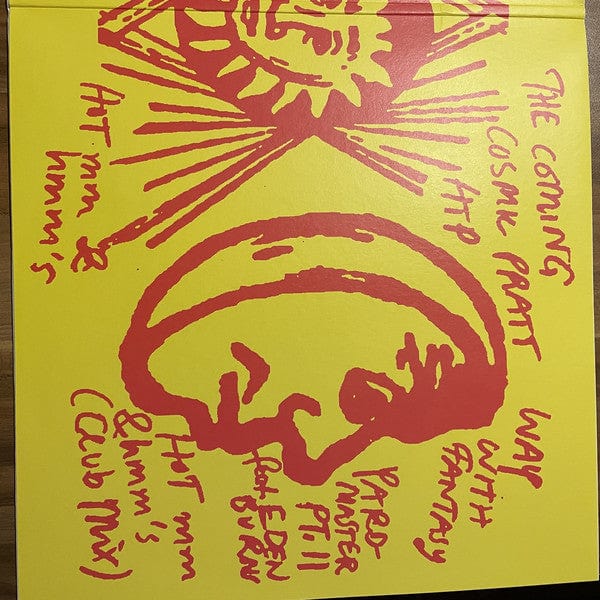 THE COMING
COSMIC PRATT
WAY
WITH
FANTASY
YARD-
MASTER
PT. II
feat EDEN
BURN
HOT mm &
hmm's
HOT mm
& hmm's
(Club Mix)